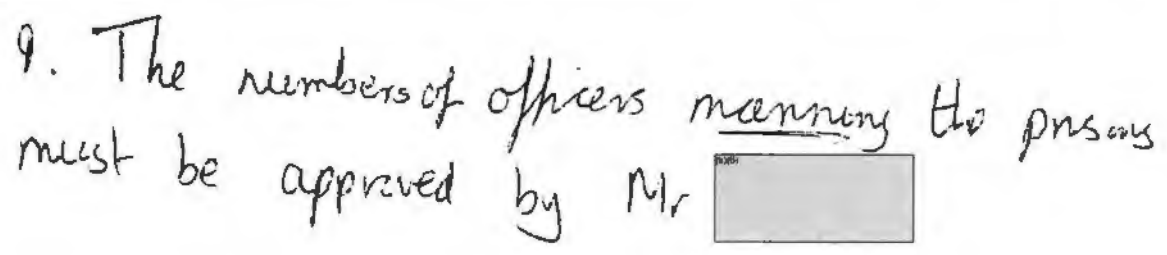 9. The numbers of officers manning the prisons
must be approved by Mr